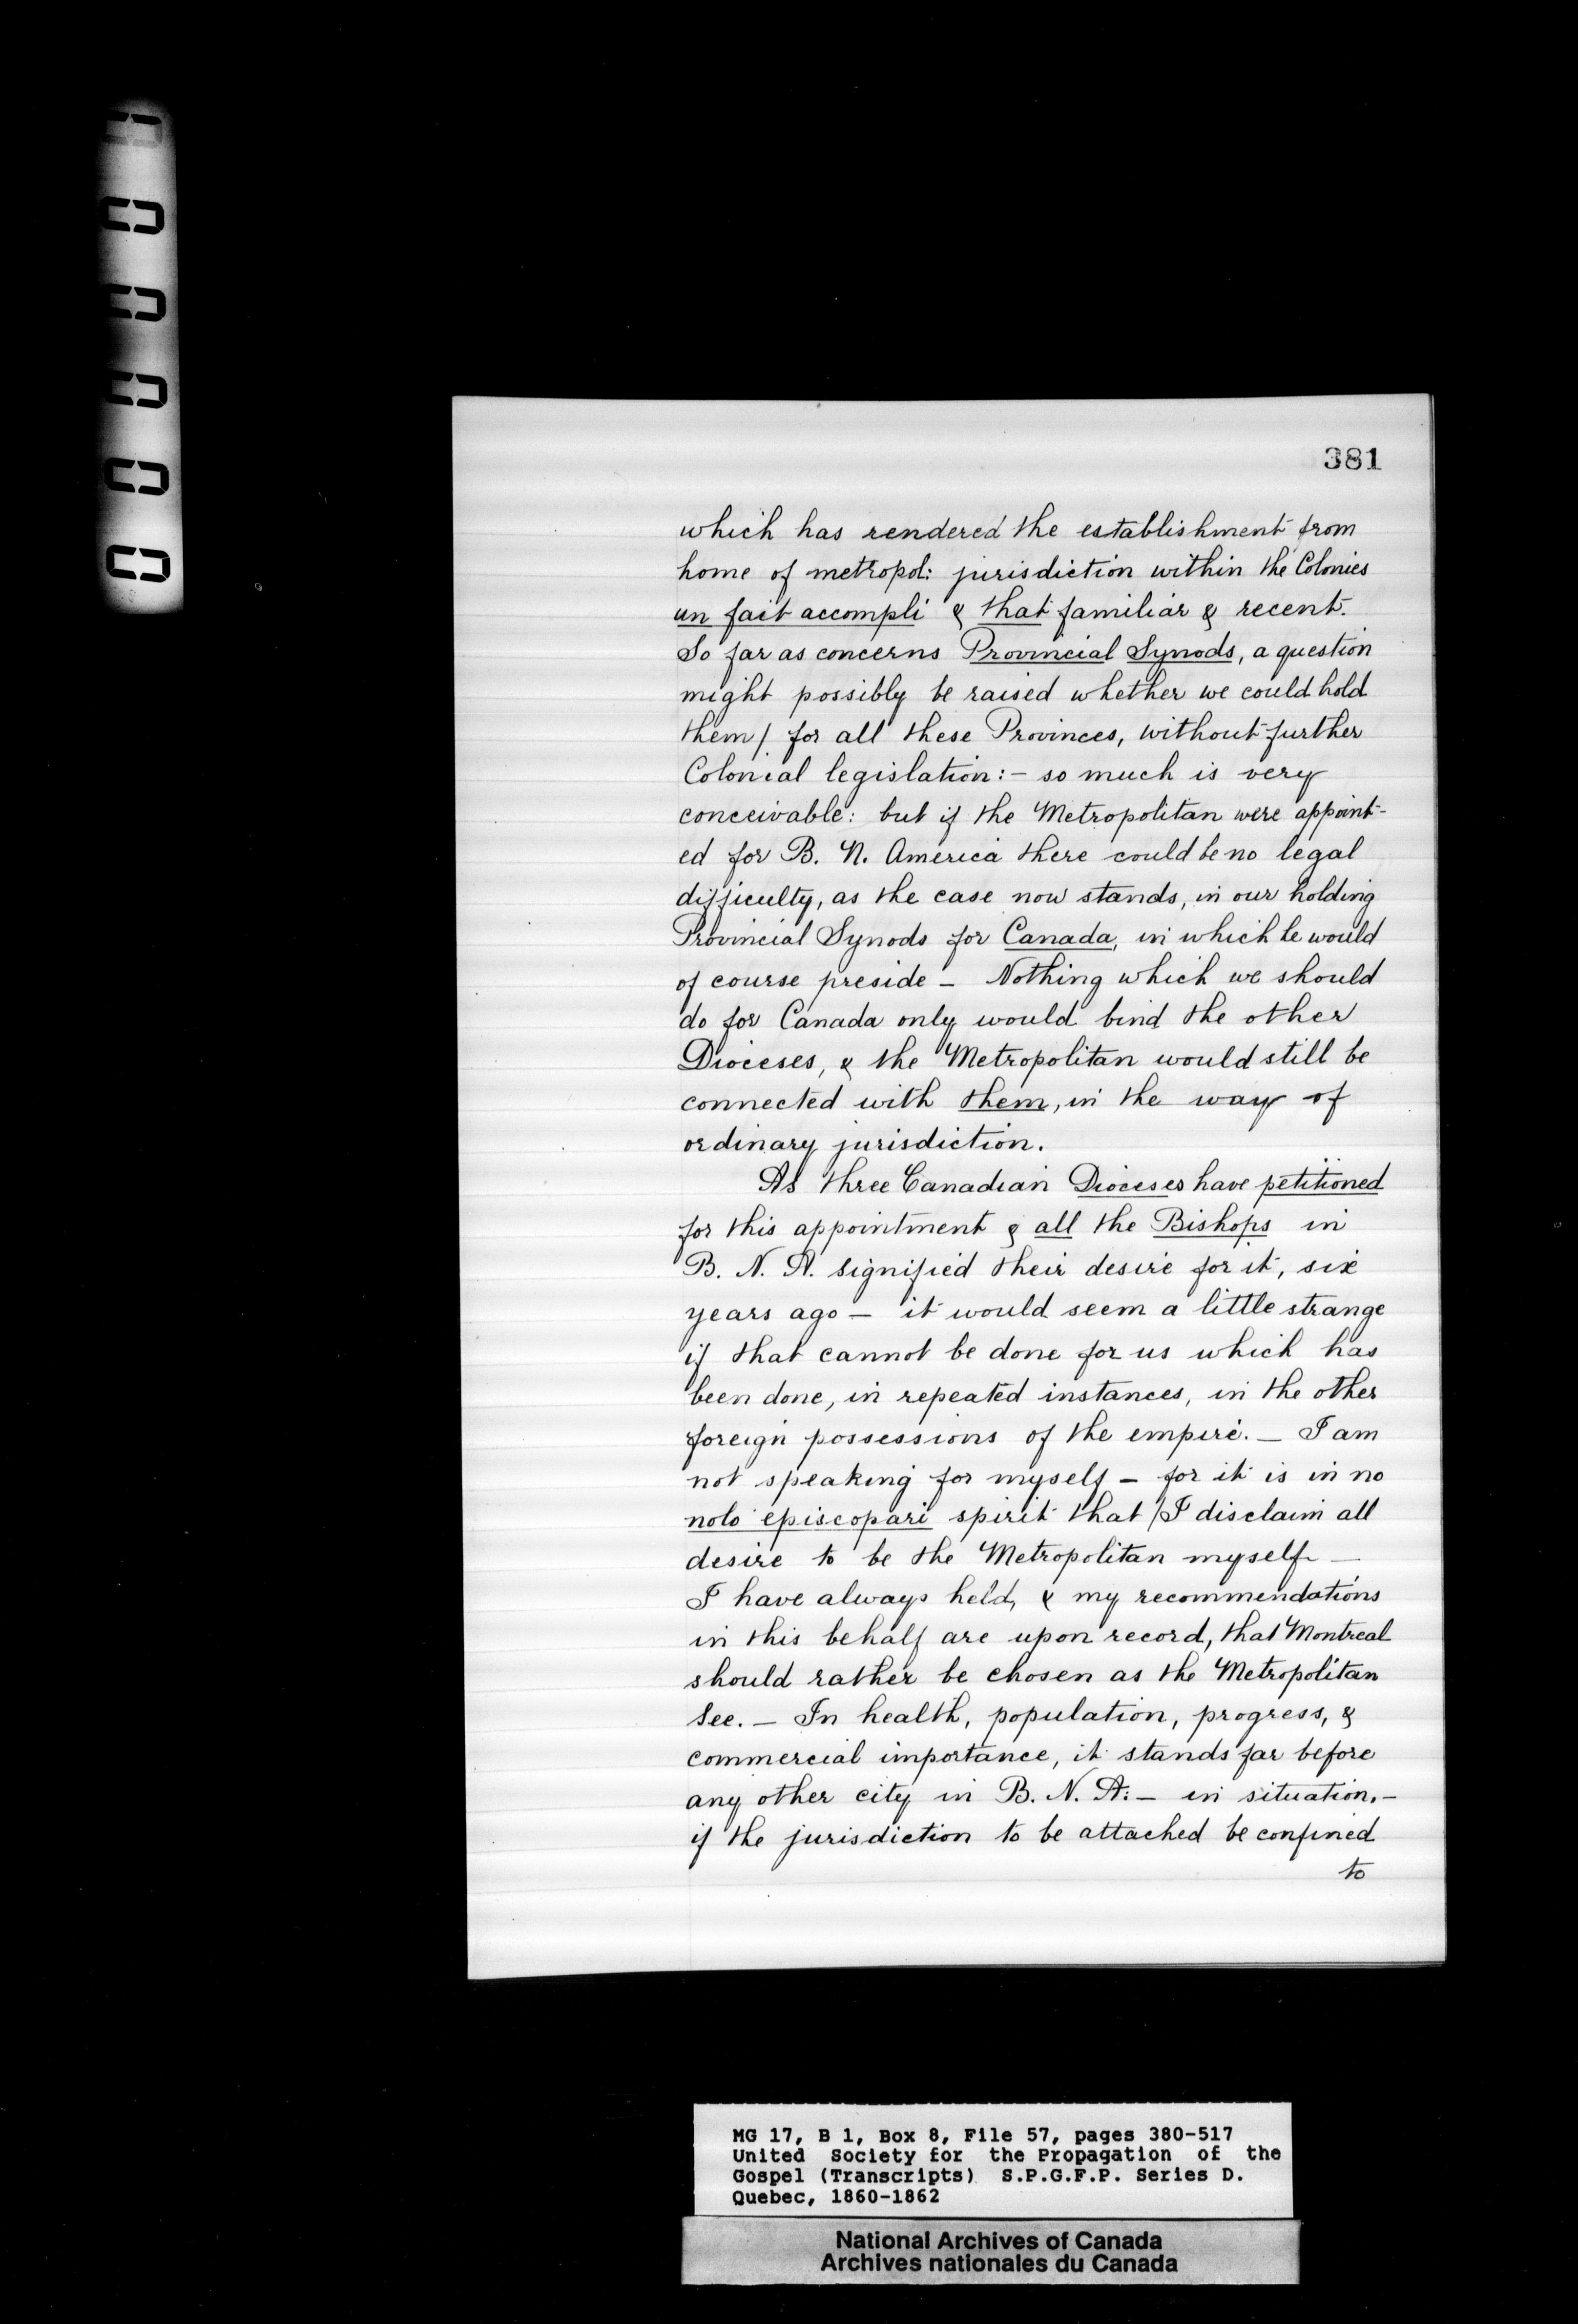 381
which has rendered the establishment from
home of metropol: jurisdiction within the Colonies
un fait accompli & that familiar & recent.
So far as concerns Provincial Synods, a question
might possibly be raised whether we could hold
them/ for all these Provinces, without further
Colonial legislation:- so much is very
conceivable: but if the Metropolitan were appoint-
ed for B. N. America there could be no legal
difficulty, as the case now stands, in our holding
Provincial Synods for Canada, in which he would
of course preside - Nothing which we should
do for Canada only would bind the other
Dioceses, & the Metropolitan would still be
connected with them, in the way of
ordinary jurisdiction.
As three Canadian Dioceses have petitioned
for this appointment & all the Bishops in
B. N. A. signified their desire for it, six
years ago — it would seem a little strange
if that cannot be done for us which has
been done, in repeated instances, in the other
foreign possessions of the empire. — I am
not speaking for myself - for it is in no
nolo episcopari spirit that /I disclaim all
desire to be the Metropolitan myself —
I have always held, & my recommendations
in this behalf are upon record, that Montreal
should rather be chosen as the Metropolitan
See. — In health, population, progress, &
commercial importance, it stands far before
any other city in B. N. A: — in situation, -
if the jurisdiction to be attached be confined
to
MG 17, B 1, Box 8, File 57, pages 380-517
United Society for the Propagation of the
Gospel (Transcripts) S.P.G.F.P. Series D.
Quebec, 1860-1862
National Archives of Canada
Archives nationales du Canada